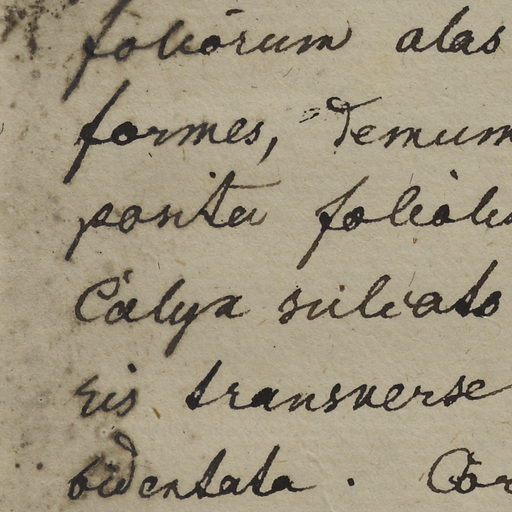 foliorum alas
formes, demum
posita foliolis
Calyx sulcato
ris transverse
bidentata. Cor